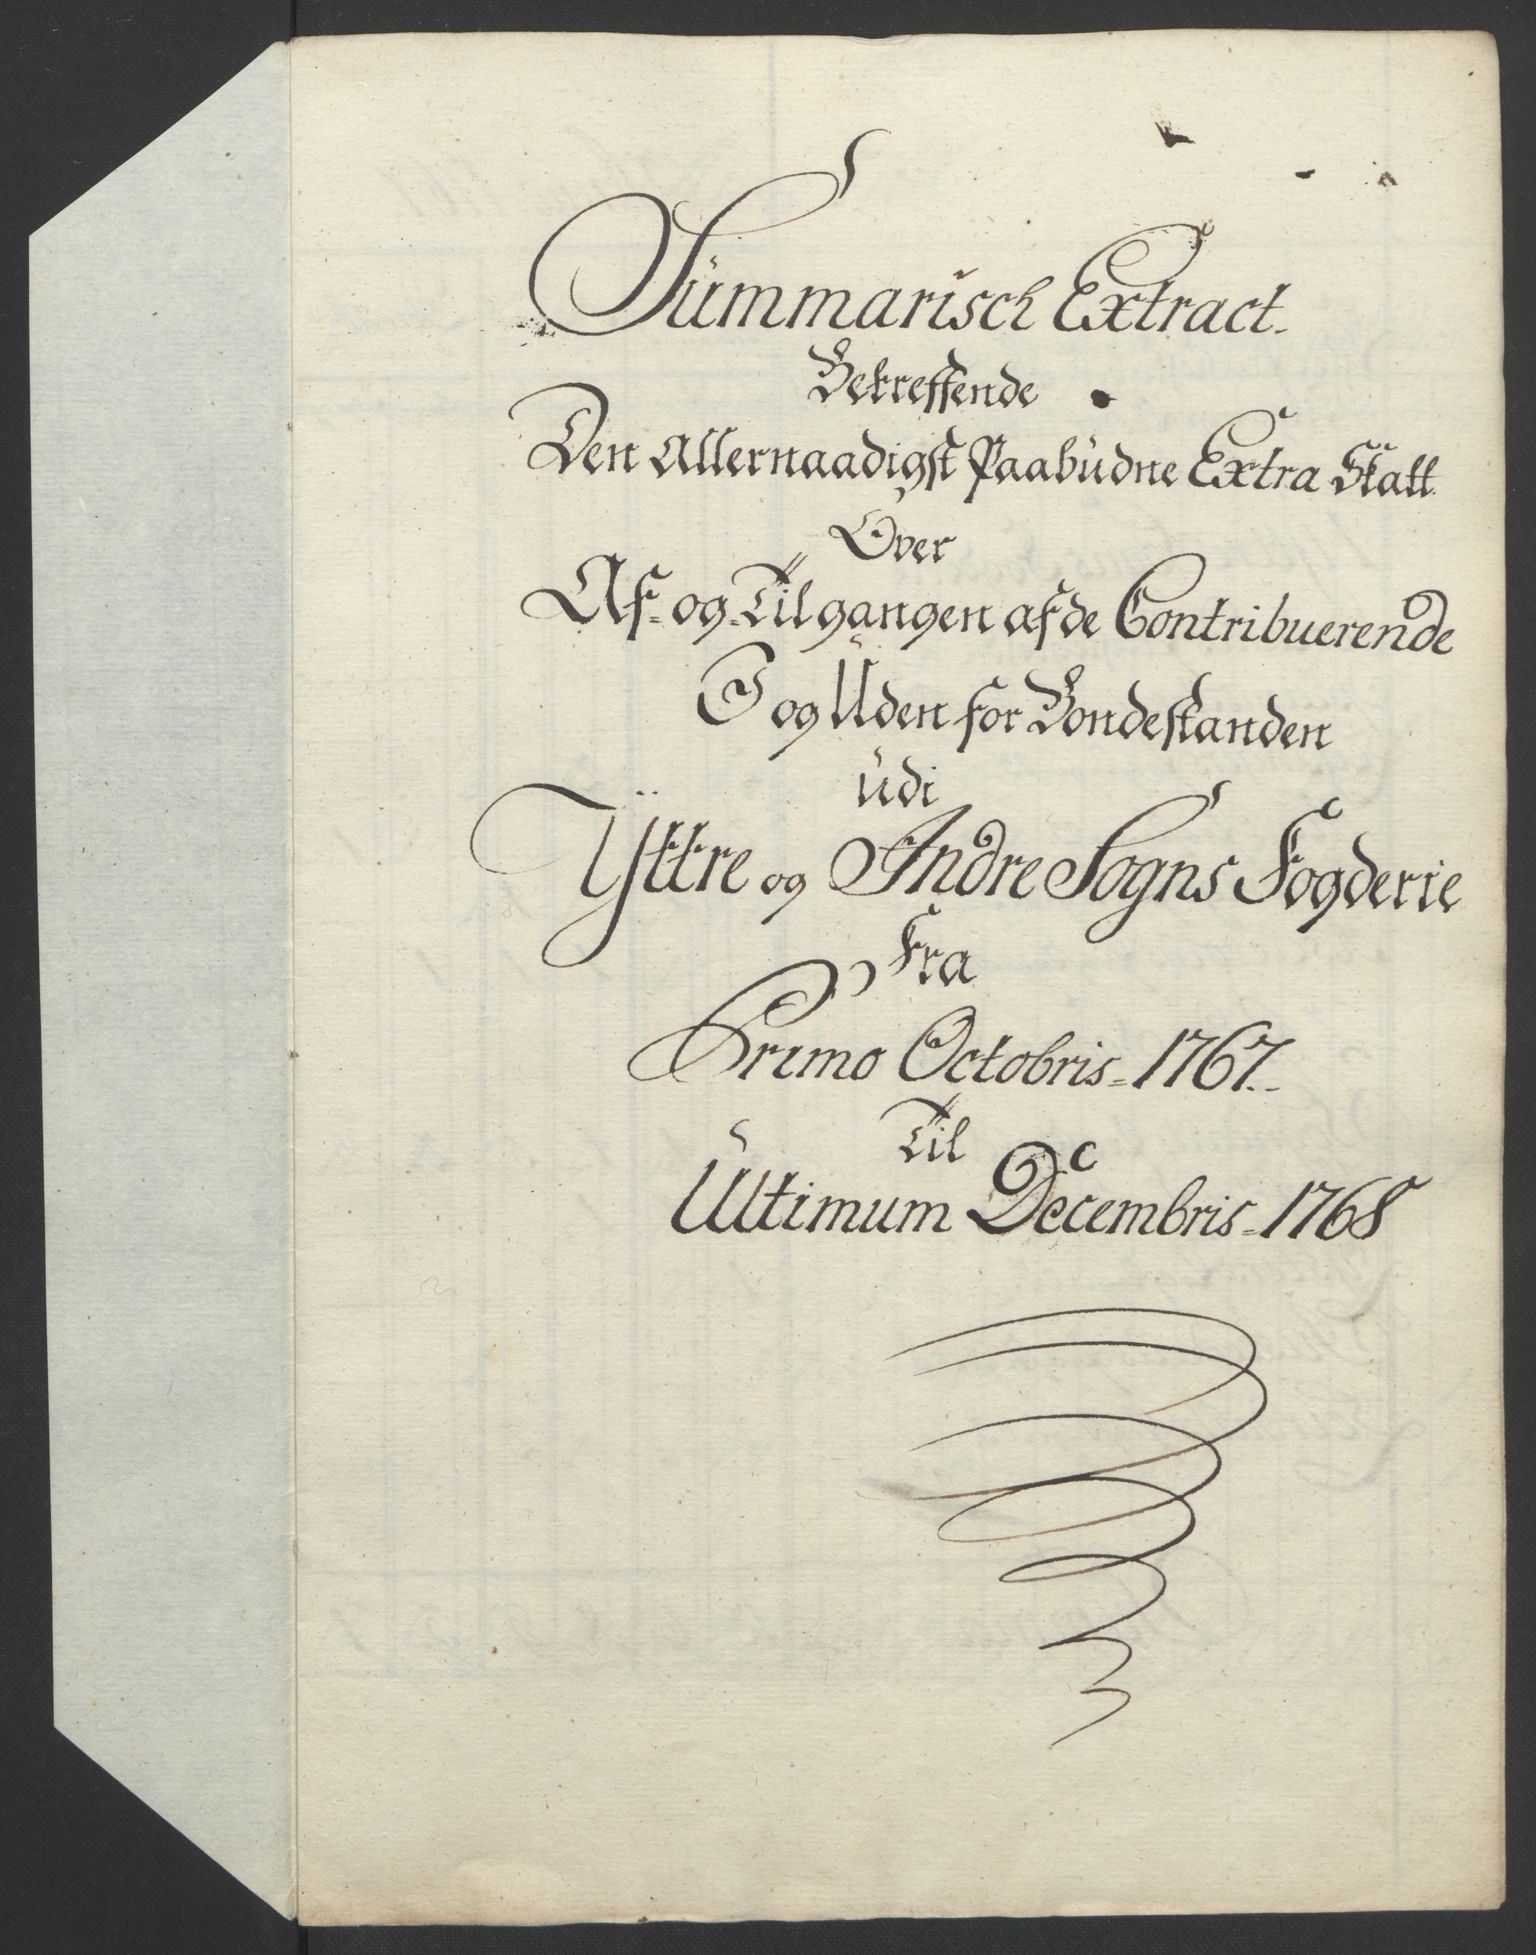 Summarisch Extract.
Betreffende
Den Allernaadigst Paabudne Extra Skatt
Over
Af- og Tilgangen af de Contribuerende
I og Uden for Bondestanden
udi
Ÿttre og Indre Sogns Fogderie
Fra
Primo Octobris = 1767.
Til
Ultimum Decembris = 1768